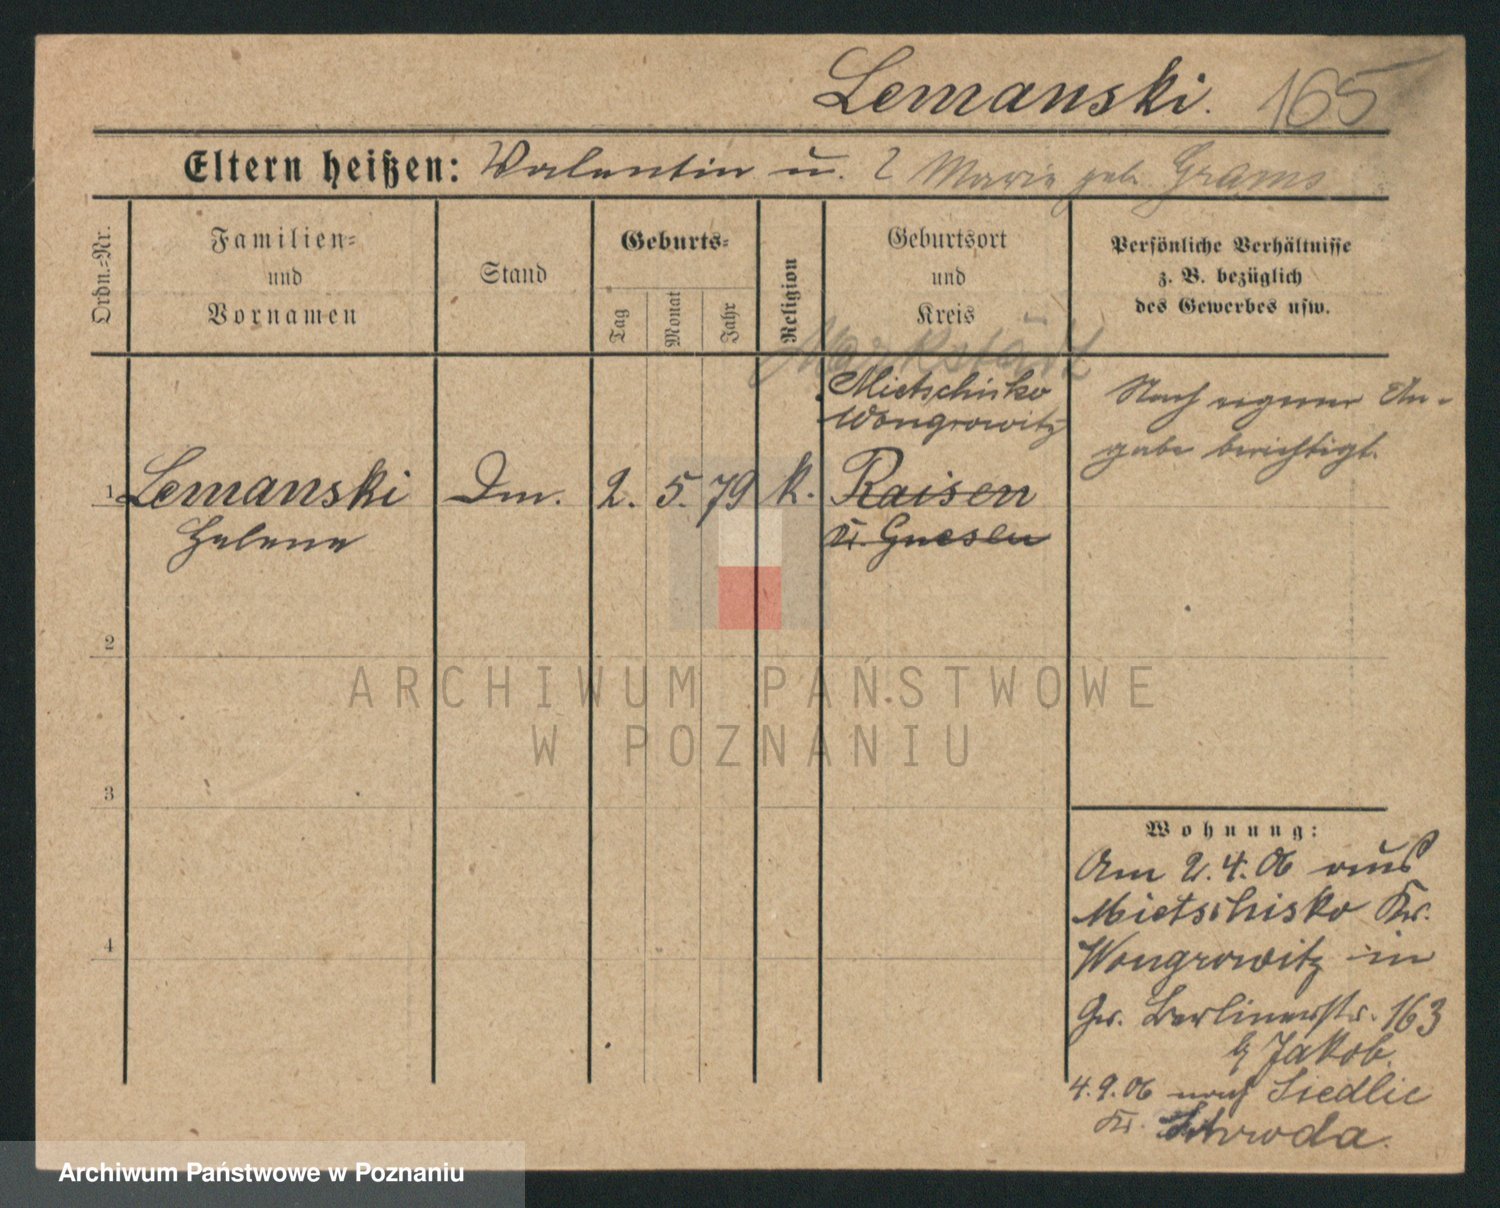 Lemanski. 165
Eltern heißen: Valentin u. Marie geb. Grams
Ordn.-Nr.
Familien-
und
Vornamen
Stand
Geburts-
Tag
Monat
Jahr
Religion
Geburtsort
und
Kreis
Persönliche Verhältnisse
z. B. bezüglich
des Gewerbes usw.
Markstädt
Mietschisko
Wongrowitz
Nach eigener An-
gabe berichtigt.
1 Lemanski Dm. 2. 5. 79 k. Raisen
Helene Kr. Gnesen
2
3
4
ARCHIWUM PAŃSTWOWE
W POZNANIU
Wohnung:
Am 2.4.06 aus
Mietschisko Kr.
Wongrowitz in
Gr. Berlinerstr. 163
b/ Jakob.
4.9.06 nach Siedlic
Kr. Schroda.
Archiwum Państwowe w Poznaniu